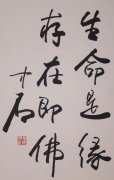 生命是缘
存在即佛
十石